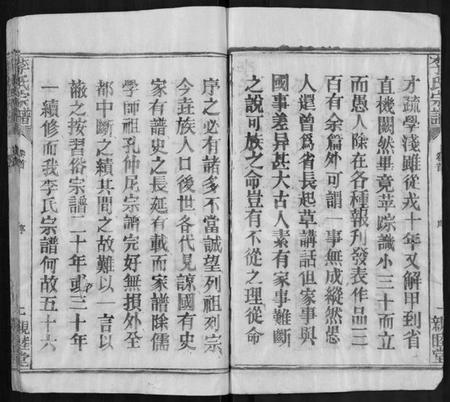 才疏學淺雖從戎十年又解甲到省
直機關然畢竟莖踪識小三十而立
而愚人除在各種報刊發表作品二
百有余篇外可謂一事無成縱然愚
人還曾爲省長起草講話但家事與
國事差异甚大古人素有家事難斷
之說可族之命豈有不從之理從命
序之必有諸多不當誠望列祖列宗
今壵族人口後世各代見諒國有史
家有譜史之長延有載而家譜除儒
學師祖孔仲尼宗譜完好無損外全
都中斷之續其間之故難以一言以
蔽之按習俗宗譜二十年或三十年
一續修而我李氏宗譜何故五十六
李氏宗譜
卷首
序
一
親睦堂